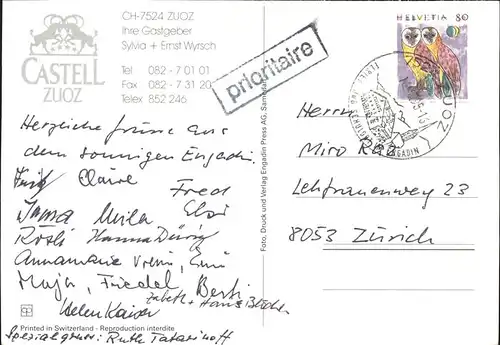 CH-7524 ZUOZ
Ihre Gastgeber
Sylvia + Ernst Wyrsch
CASTELL
ZUOZ
Tel 082 - 7 01 01
Fax 082 - 7 31 20
Telex 852 246
prioritaire
HELVETIA 80
7524 ZUOZ
ENGADIN
Herzliche Grüsse aus
dem sonnigen Engadin.
Fritz Claire Fred
Irma Meila Elsi
Rösli Hanna Dürig
Annamarie Emmi
Maja, Friedel Berti
Elsbeth + Hans
Helen Kaiser
Spezialgruss: Ruth Tatarinoff
Printed in Switzerland - Reproduction interdite
Foto, Druck und Verlag Engadin Press AG, Samedan
Herrn
Miro
Lehfrauenweg 23
8053 Zürich